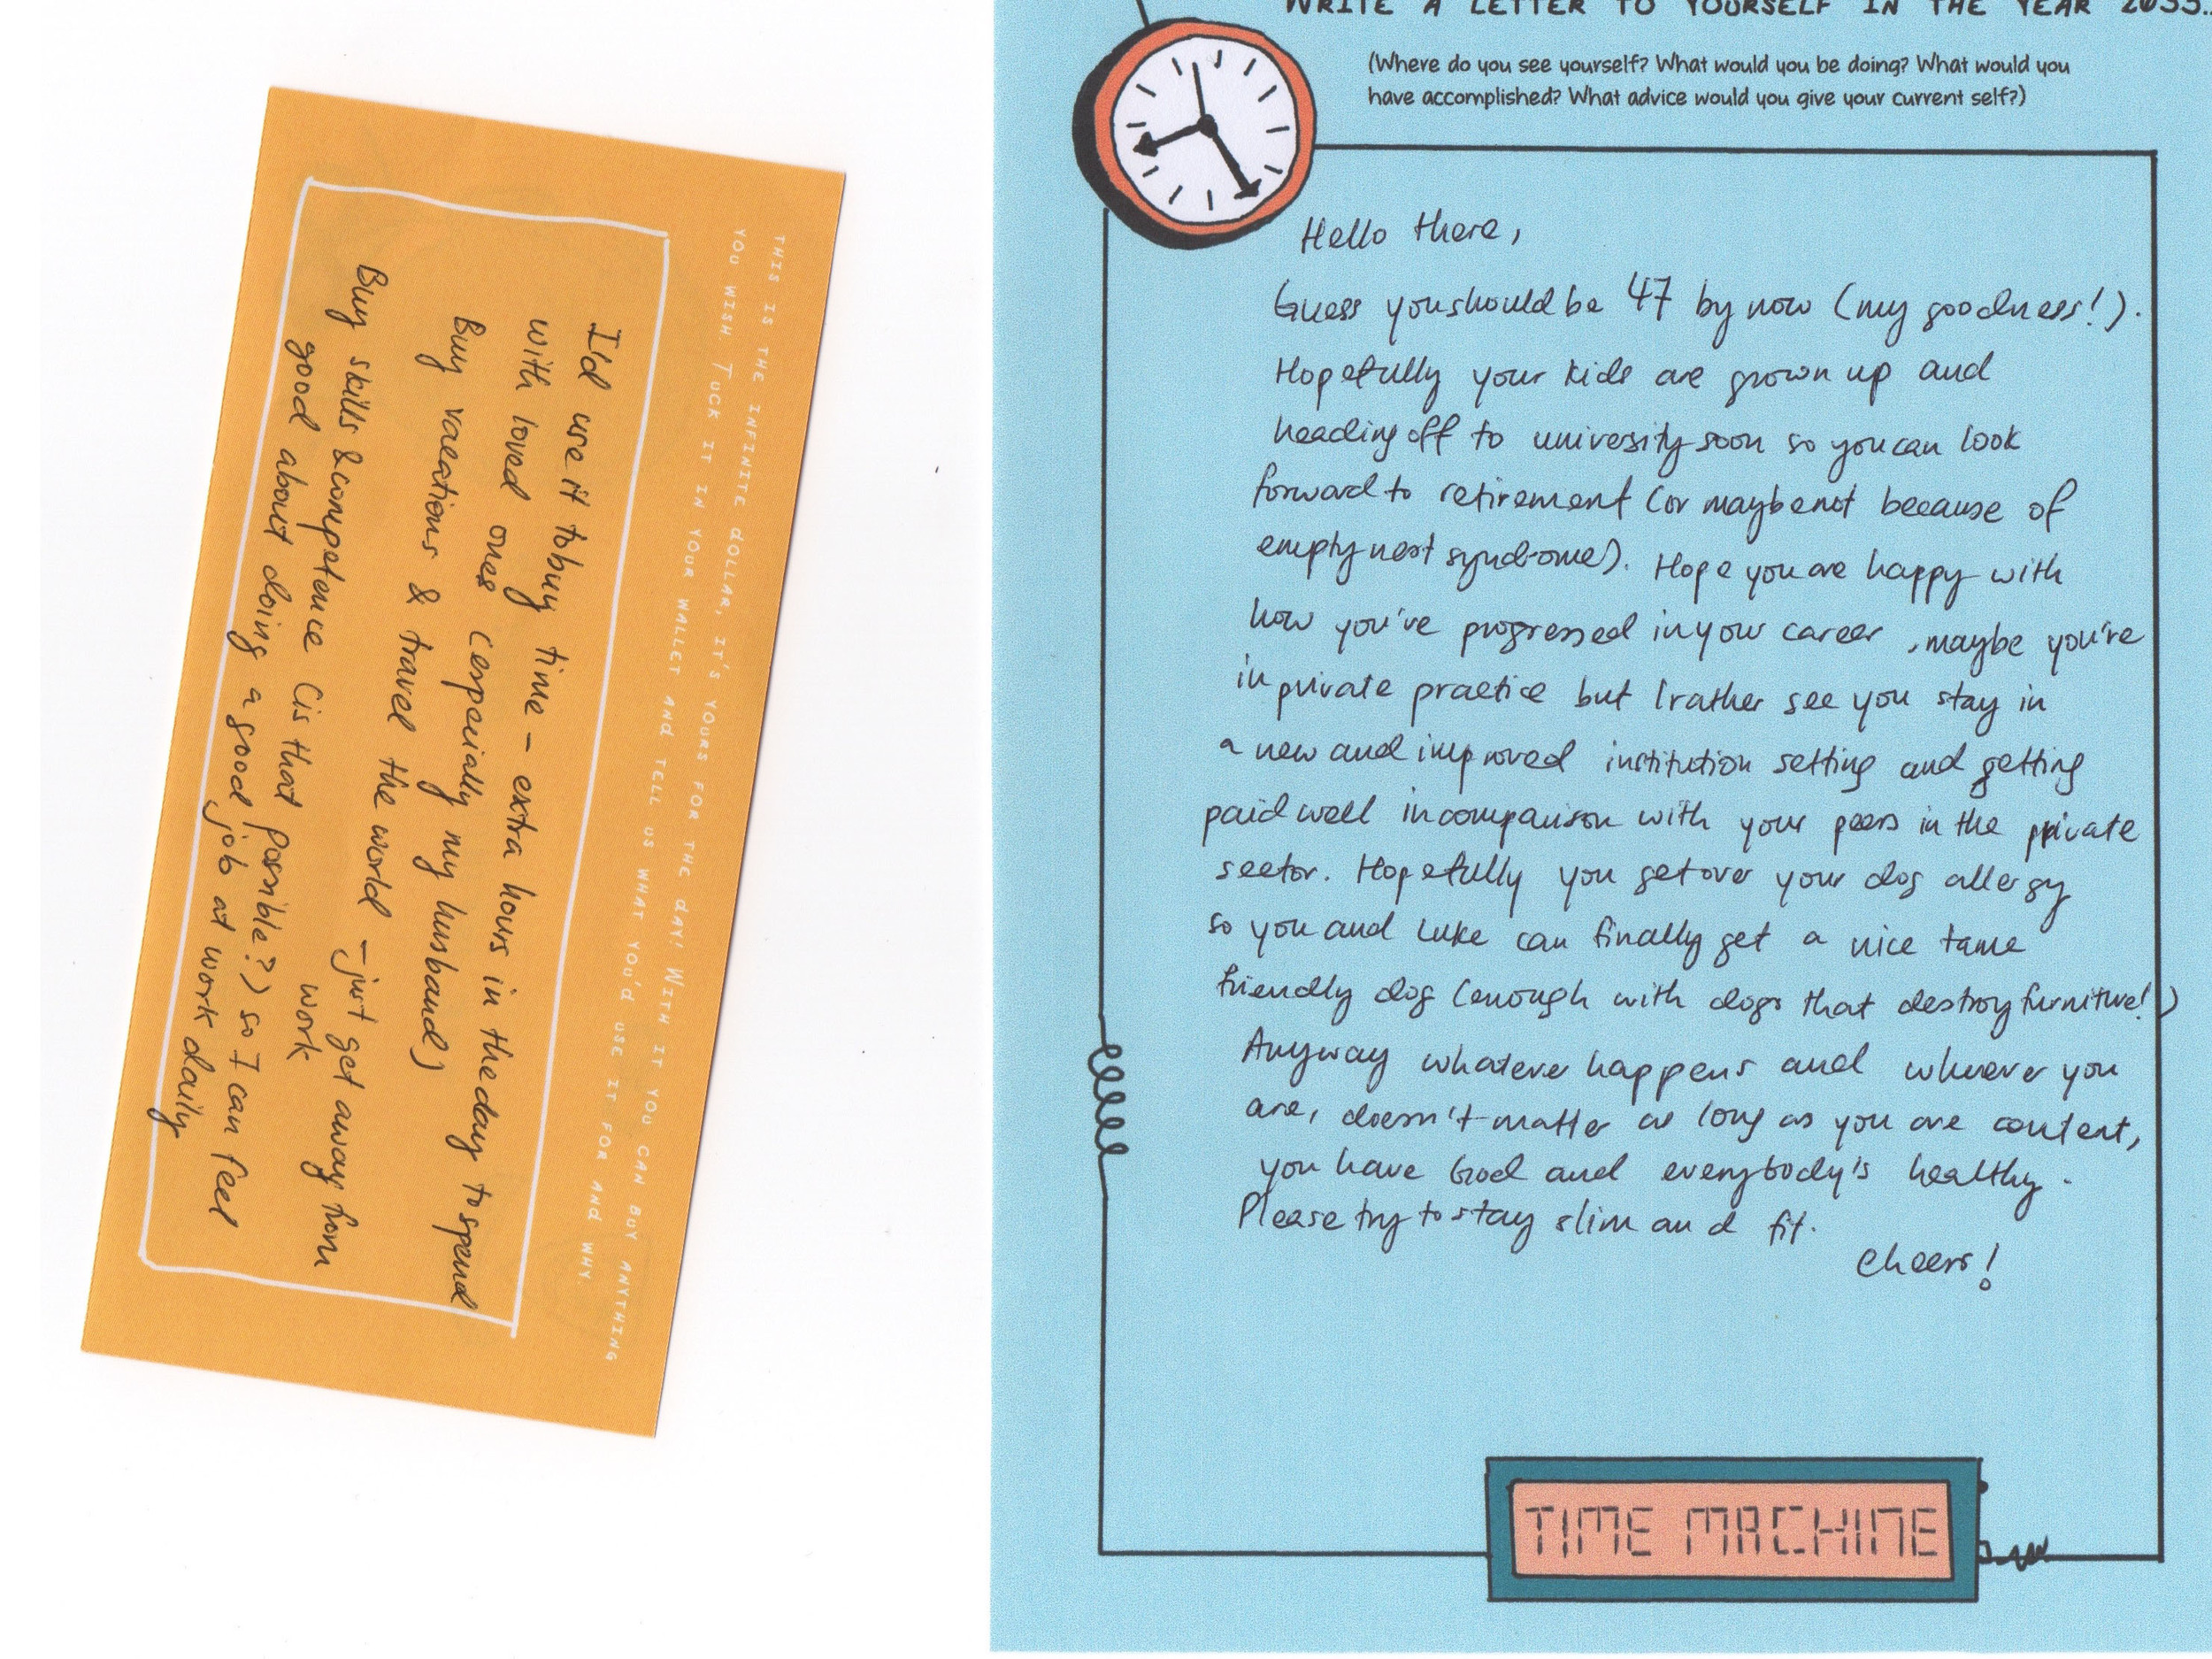 THIS IS THE INFINITE DOLLAR, IT'S YOURS FOR THE DAY! WITH IT YOU CAN BUY ANYTHING
YOU WISH. TUCK IT IN YOUR WALLET AND TELL US WHAT YOU'D USE IT FOR AND WHY
I'd use it to buy time – extra hours in the day to spend
with loved ones (especially my husband)
Buy vacations & travel the world – just get away from
work
Buy skills & competence (is that possible?) so I can feel
good about doing a good job at work daily
WRITE A LETTER TO YOURSELF IN THE YEAR 2035..
(Where do you see yourself? What would you be doing? What would you
have accomplished? What advice would you give your current self?)
Hello there,
Guess you should be 47 by now (my goodness!).
Hopefully your kids are grown up and
heading off to university soon so you can look
forward to retirement (or maybe not because of
empty nest syndrome). Hope you are happy with
how you've progressed in your career, maybe you're
in private practice but I rather see you stay in
a new and improved institution setting and getting
paid well in comparison with your peers in the private
sector. Hopefully you get over your dog allergy
so you and Luke can finally get a nice tame
friendly dog (enough with dogs that destroy furniture!)
Anyway whatever happens and wherever you
are, doesn't matter as long as you are content,
you have God and everybody's healthy.
Please try to stay slim and fit.
Cheers!
TIME MACHINE